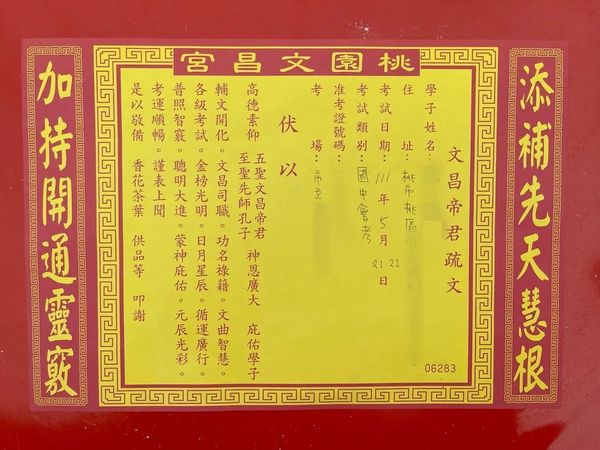 桃園文昌宮
添補先天慧根
文昌帝君疏文
學子姓名：
住址：桃市桃區
考試日期：111年5月21 22日
考試類別：國中會考
准考證號碼：
考場：市立
伏以
五聖文昌帝君 神恩廣大 庇佑學子
高德素仰 至聖先師孔子
輔文開化。文昌司職。功名祿籍。文曲智慧。
各級考試。金榜光明。日月星辰。循運廣行。
普照智竅。聰明大進。蒙神庇佑。元辰光彩。
考運順暢。謹表上聞
是以敬備 香花茶葉 供品等 叩謝
06283
加持開通靈竅